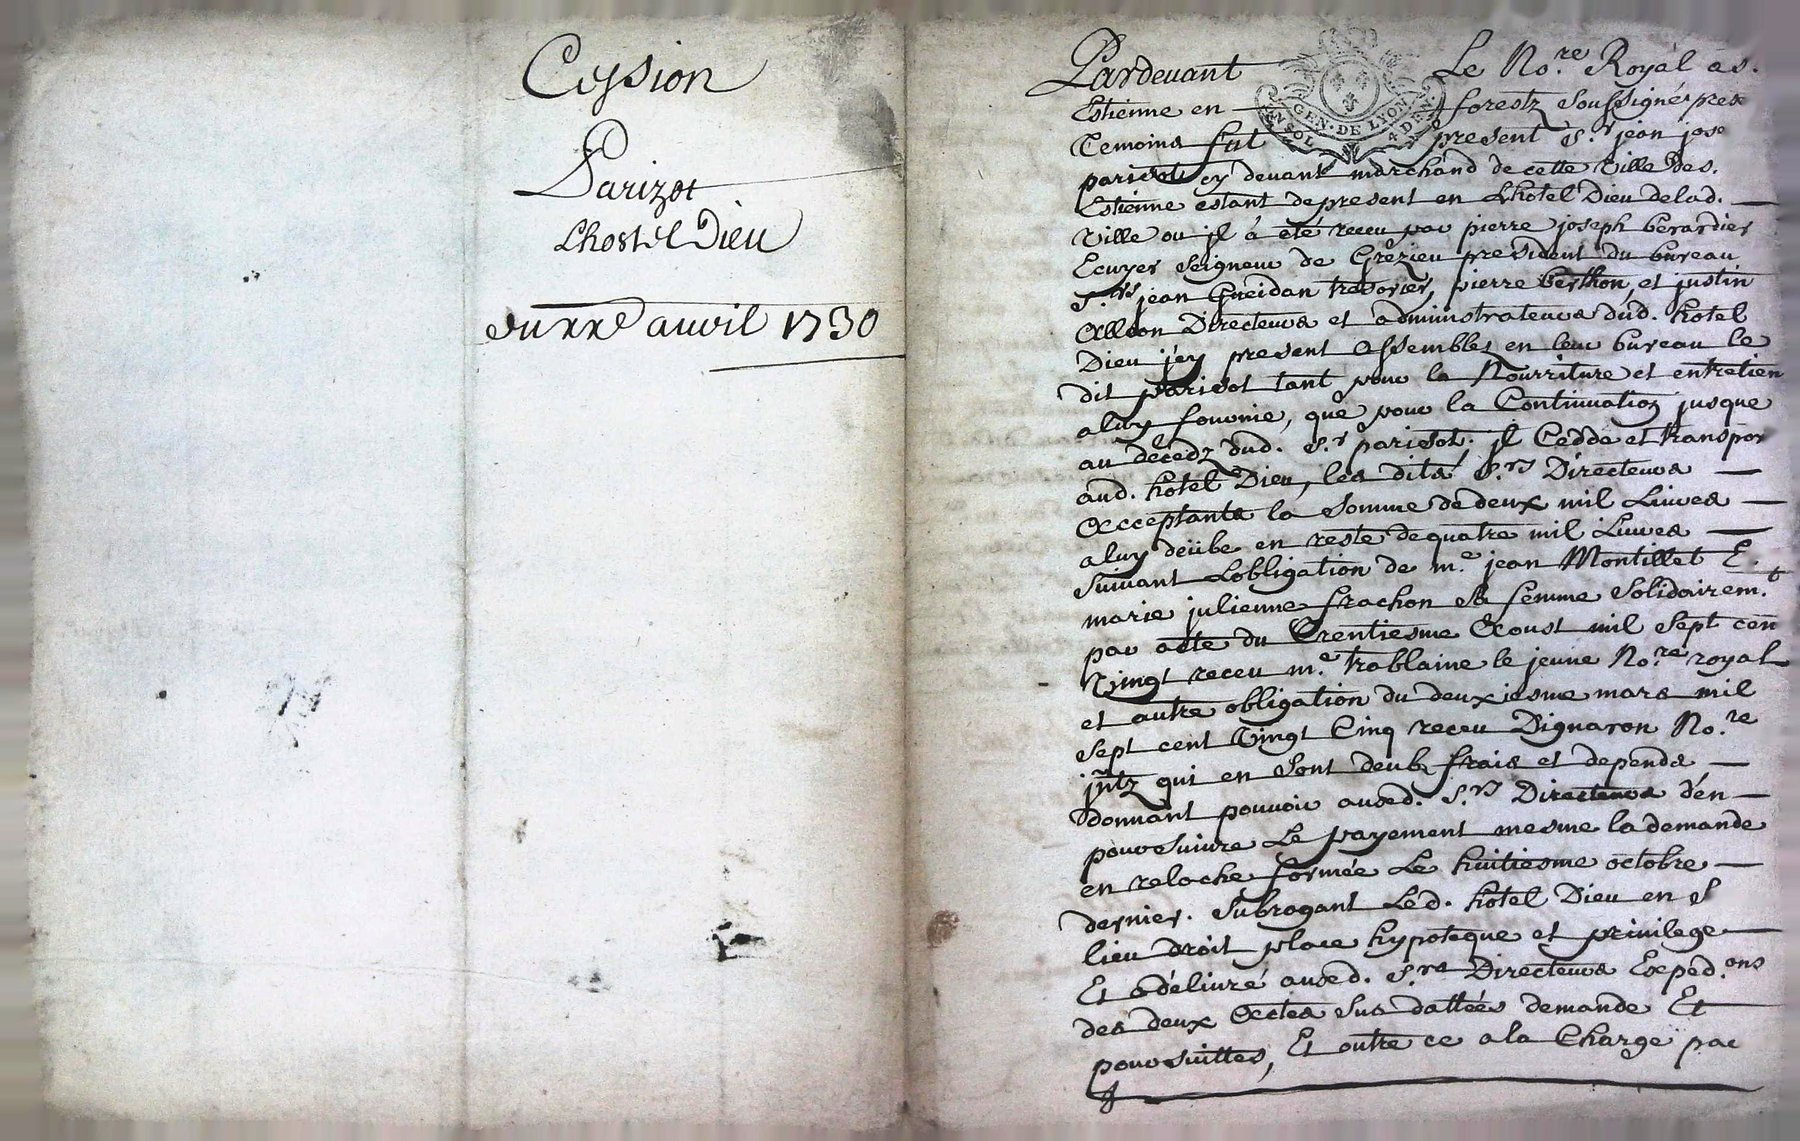 Cession
Parizot
Lhostel Dieu
du xxe auril 1730
Pardeuant Le No.re Royal a s.
Estienne en forestz soussigné, pres
GEN. DE LYON
4 DEN.
Temoins fut present s.r jean jose
parisot cy deuant marchand de cette Ville de s.
Estienne estant de present en Lhotel Dieu de lad.
Ville ou jl à eté receu par pierre joseph berardier
Ecuyer seigneur de Grézieu president du bureau
s.rs jean Gueidan tresorier, pierre berthon, et justin
Alleon Directeurs et administrateurs dud. hotel
Dieu jcy present assemblez en leur bureau le
dit parisot tant pour la Nourriture et entretien
a luy fournie, que pour la Continuation jusque
au décedz dud. s.r parisot. jl Cedde et transpor
aud. hotel Dieu, les dits s.rs Directeurs
Acceptants la somme de deux mil Liures
a luy deübe en reste de quatre mil Liures
suiuant Lobligation de m.e jean Montillet E.
marie julienne frachon sa femme solidairem.t
par acte du Trentiesme Aoust mil sept cen
Vingt receu m.e trablaine le jeune No.re royal
et autre obligation du deuxiesme mars mil
sept cent Vingt Cinq receu Dignaron No.re
jntz qui en sont deubz frais et depends
donnant pouuoir ausd. s.rs Directeurs d'en
poursuiure Le payement mesme la demande
en relache formée Le huitiesme octobre
dernier. subrogant Led. hotel Dieu en s
lieu droit place hypoteque et priuilege
Et a déliuré ausd. s.rs Directeurs Exped.ons
des deux Actes sus dattées demande Et
poursuittes, Et outre ce a la Charge par